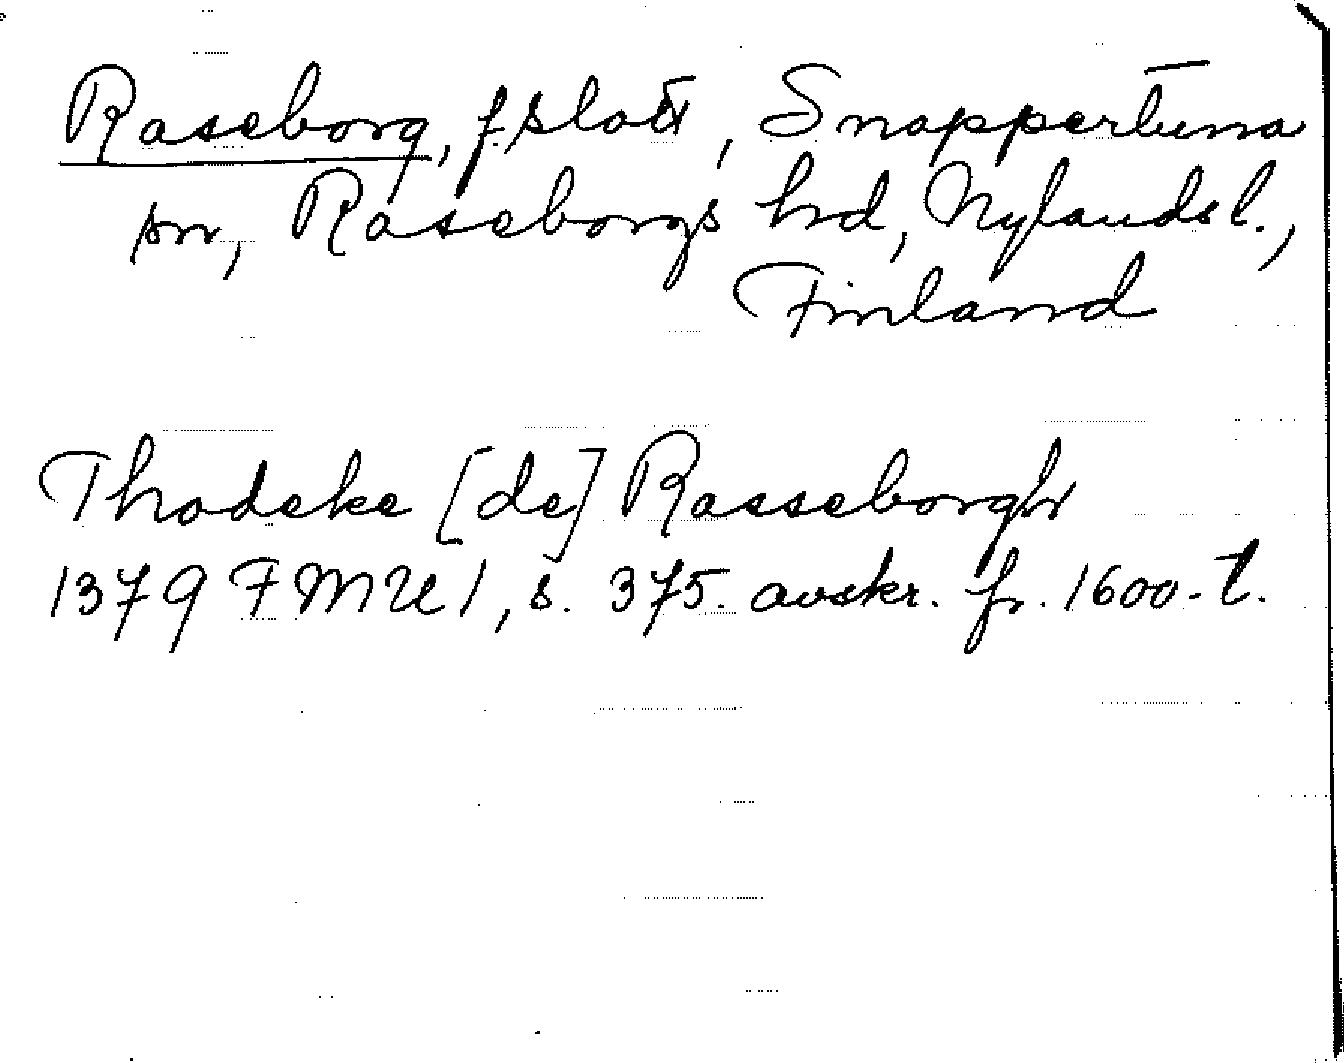 Raseborg, f. slott, Snappertuna
sn, Raseborgs hd, Nylands l.,
Finland
Thodeke [de] Rasseborgh
1379 FMU 1, s. 375. avskr. fr. 1600-t.